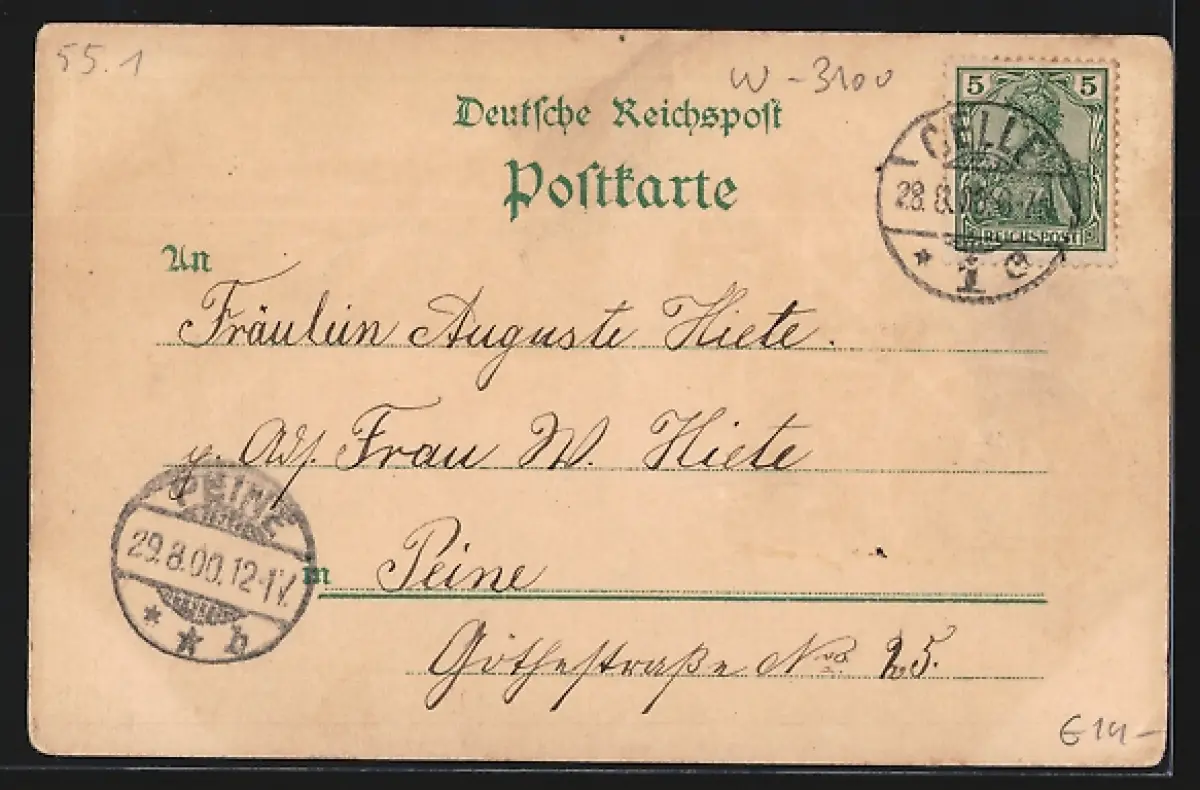 55.1
W-3100
Deutsche Reichspost
Postkarte
5 5
REICHSPOST
CELLE
28.8.00
1 c
An
Fräulein Auguste Hiete.
p. Adr. Frau W. Hiete
PEINE
29.8.00.12-1V.
* * b
in Peine
Göthestraße No. 25.
€14-